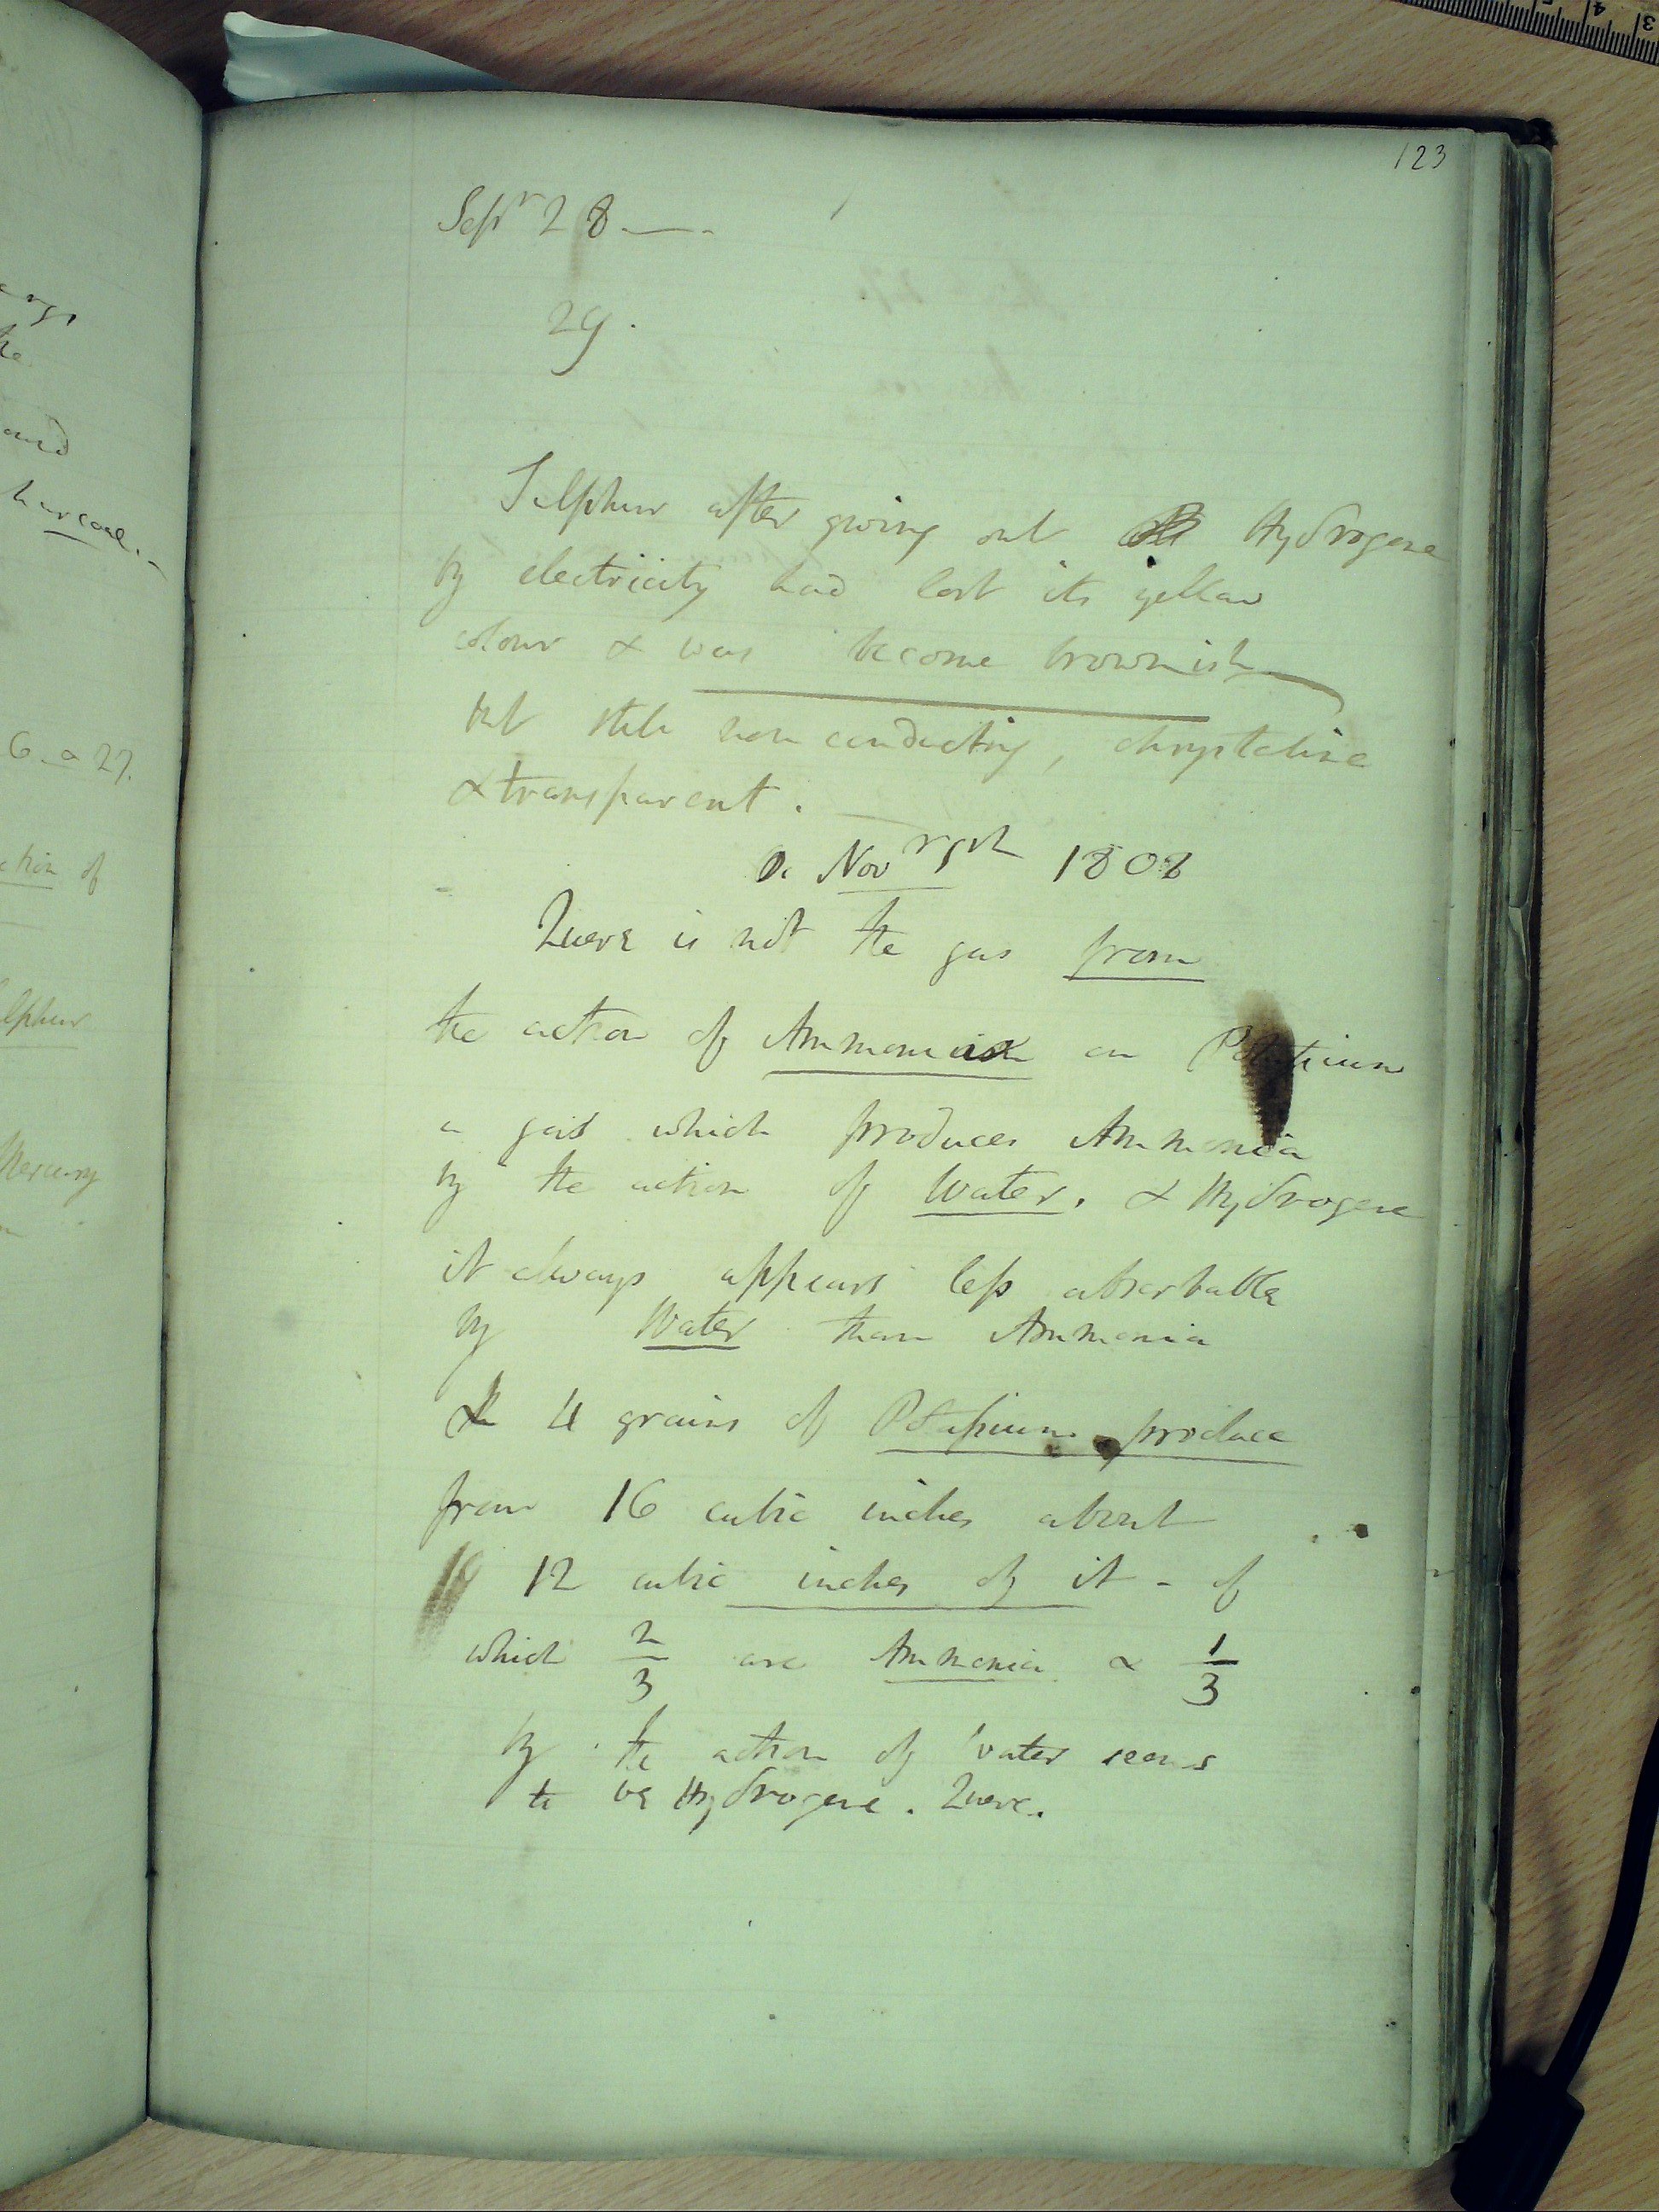 123
Sepr 28 —.
29.
Sulphur after giving out Hydrogene
by electricity had lost its yellow
colour & was become brownish
but still non conducting, chrystaline
& transparent.
Nov 1808
Quere is not the gas from
the action of Ammonia on Potassium
a gas which produces Ammonia
by the action of Water. & Hydrogene
it always appears less absorbable
by Water than Ammonia
& 4 grains of Potassium produce
from 16 cubic inches about
12 cubic inches of it - of
which 2/3 are Ammonia & 1/3
by the action of water seems
to be Hydrogene. Quere.
and
harcoal.
6 - a 27.
ction of
lphur
Mercury
5 4 3